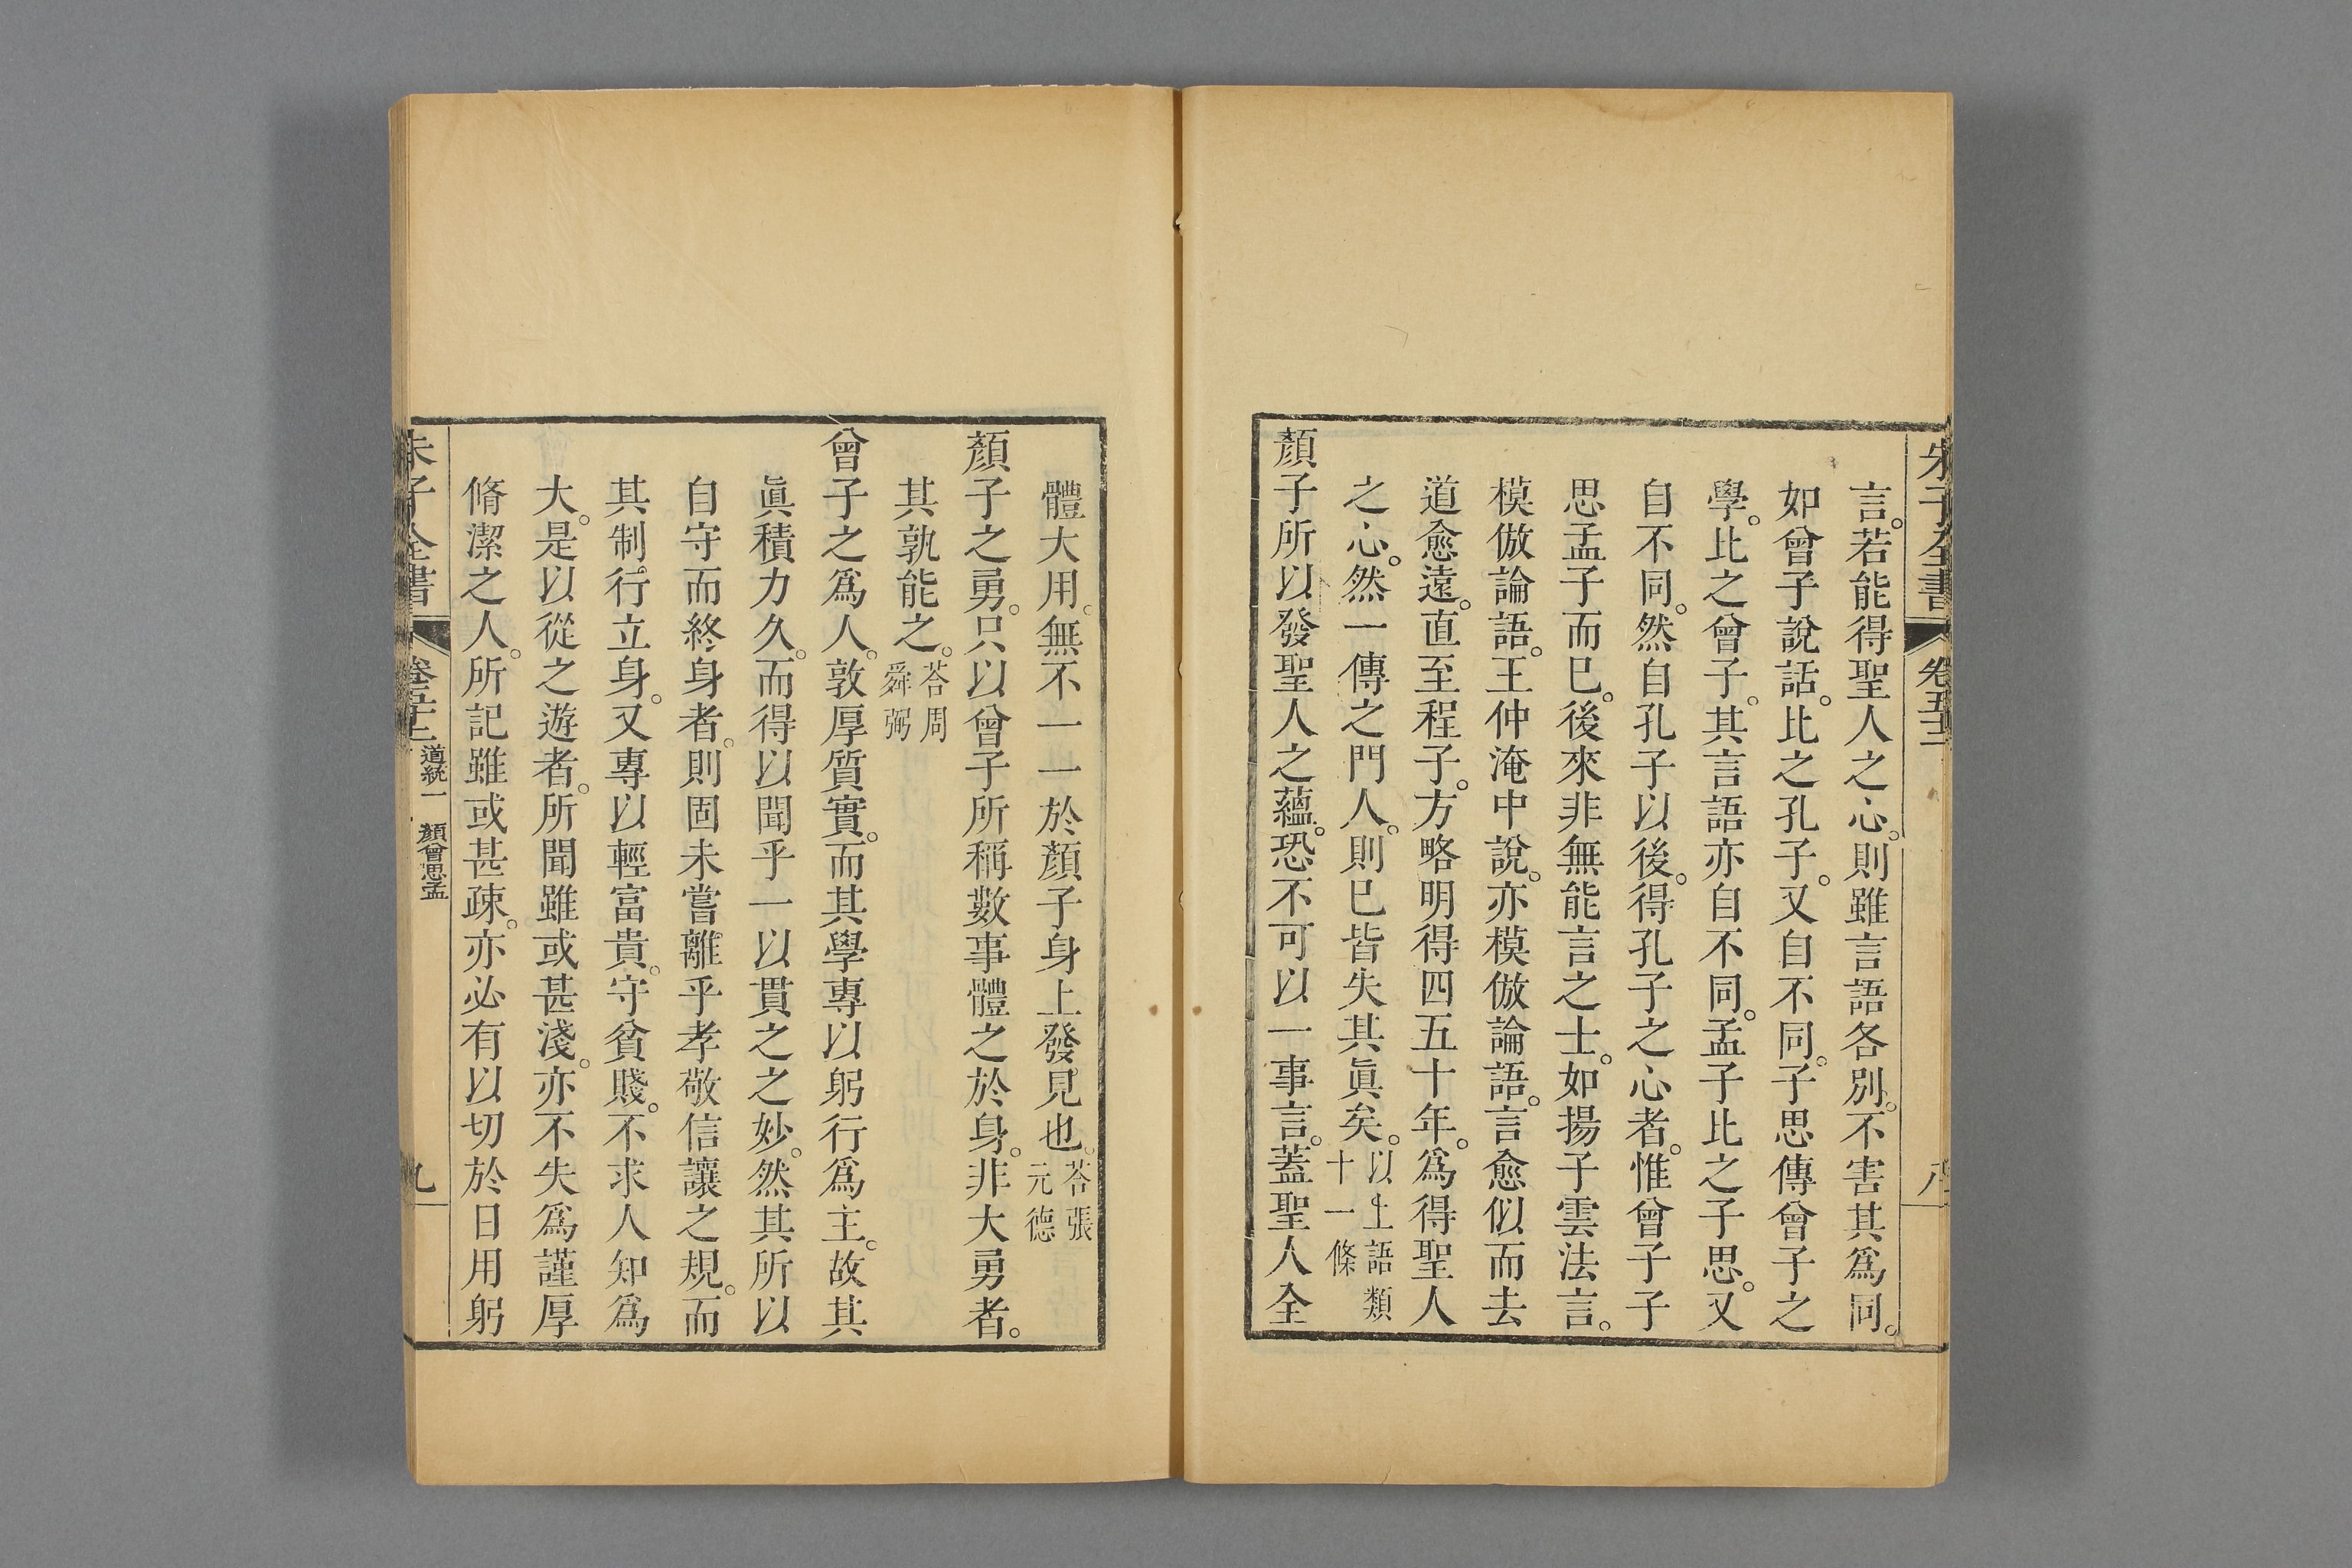 朱子全書 卷五十二 八
言。若能得聖人之心。則雖言語各別。不害其爲同。
如曾子說話。比之孔子。又自不同。子思傳曾子之
學。比之曾子。其言語亦自不同。孟子比之子思。又
自不同。然自孔子以後。得孔子之心者。惟曾子子
思孟子而已。後來非無能言之士。如揚子雲法言。
模倣論語。王仲淹中說。亦模倣論語。言愈似而去
道愈遠。直至程子。方略明得四五十年。爲得聖人
之心。然一傳之門人。則已皆失其眞矣。以上語類十一條
顏子所以發聖人之蘊。恐不可以一事言。蓋聖人全
體大用。無不一一於顏子身上發見也。荅張元德
顏子之勇。只以曾子所稱數事體之於身。非大勇者。
其孰能之。荅周舜弼
曾子之爲人。敦厚質實。而其學專以躬行爲主。故其
眞積力久。而得以聞乎一以貫之之妙。然其所以
自守而終身者。則固未嘗離乎孝敬信讓之規。而
其制行立身。又專以輕富貴。守貧賤。不求人知爲
大。是以從之遊者。所聞雖或甚淺。亦不失爲謹厚
脩潔之人。所記雖或甚疎。亦必有以切於日用躬
朱子全書 卷五十二 道統一 顏曾思孟 九